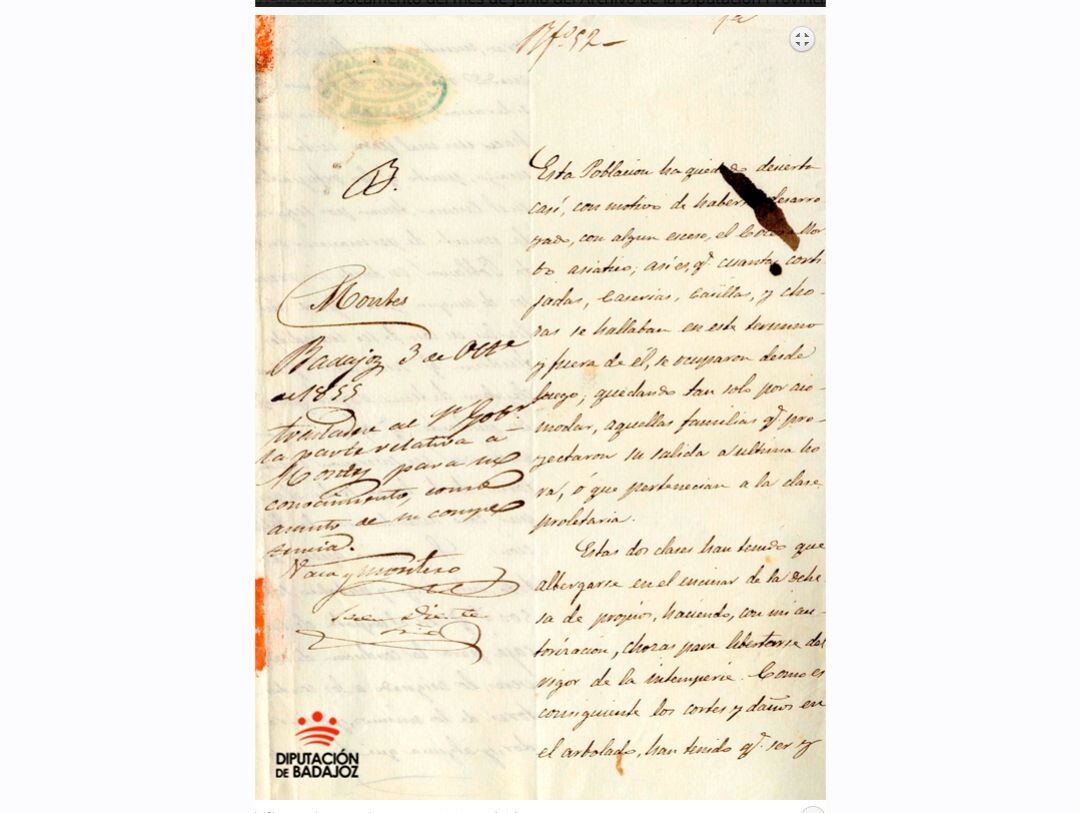 Nº 52-
B.
Montes
Badajoz 3 de Octe
de 1855
Trasladese al Sr Gobr
la parte relativa a
Montes para su
conocimiento, como
asunto de su compe
tencia.
Vaca y Montero
Esta Poblacion ha quedado desierta
casi, con motivo de haberse desarro
yado, con algun esceso, el Colera Mor
bo asiatico; asi es, q.e cuantas corti
jadas, Caserias, Casillas, y cho-
zas se hallaban en este termino
y fuera de él, se ocuparon desde
luego; quedando tan solo por aco-
modar, aquellas familias q.e pro-
yectaron su salida a ultima ho
ra, ó que pertenecian a la clase
proletaria.
Estas dos clases han tenido que
albergarse en el encinar de la dehe
sa de propios, haciendo, con mi au-
torizacion, chozas para libertarse del
rigor de la intemperie. Como es
consiguiente los cortes y daños en
el arbolado, han tenido q.e ser y
DIPUTACIÓN
DE BADAJOZ